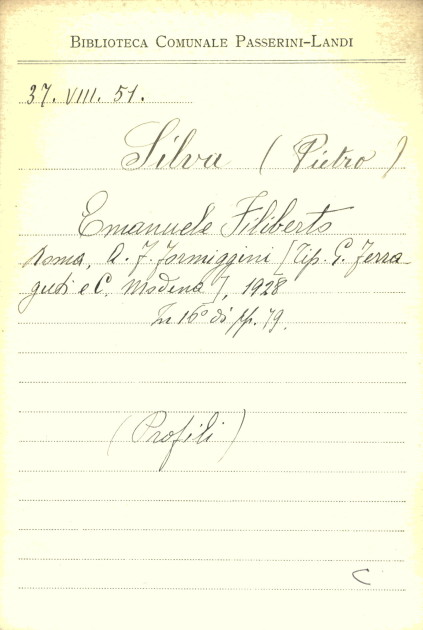 BIBLIOTECA COMUNALE PASSERINI-LANDI
37. VIII. 51.
Silva (Pietro)
Emanuele Filiberto
Roma, A. F. Formiggini [Tip. G. Ferra-
guti e C. Modena], 1928
In 16° di pp. 79.
(Profili)
C